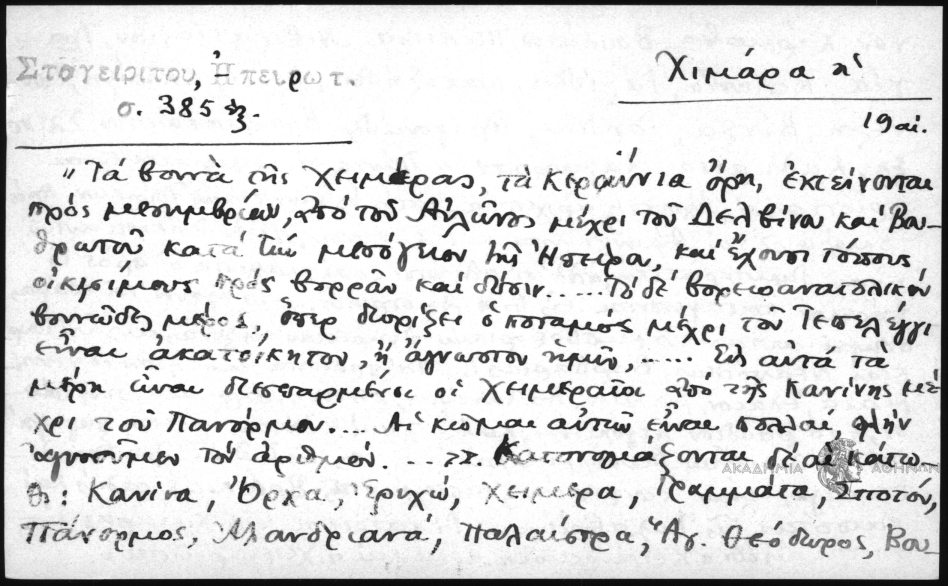 Σταγειρίτου, Ἠπειρωτ.
σ. 385 ἑξ.
Χιμάρα κ'
19 αἰ.
"Τὰ βουνὰ τῆς Χειμέρας, τὰ Κεραύνια ὄρη, ἐκτείνονται
πρὸς μεσημβρίαν, ἀπὸ τοῦ Αὐλῶνος μέχρι τοῦ Δελβίνου καὶ Βου-
θρωτοῦ κατὰ τὴν μεσόγειον τῆς Ἠπείρου, καὶ ἔχουσι τόπους
οἰκησίμους πρὸς βορρᾶν καὶ δύσιν...... Τὸ δὲ βορειοανατολικὸν
βουνῶδες μέρος, ὅπερ διορίζει ὁ ποταμὸς μέχρι τοῦ Τεπελέγγι
εἶναι ἀκατοίκητον, ἢ ἄγνωστον ἡμῖν, ..... Εἰς αὐτὰ τὰ
μέρη εἶναι διεσπαρμένοι οἱ Χειμεραῖοι ἀπὸ τῆς Κανίνης μέ-
χρι τοῦ Πανόρμου.... Αἱ κῶμαι αὐτῶν εἶναι πολλαί, πλὴν
ἀγνοοῦμεν τὸν ἀριθμόν. ... Κατονομάζονται δὲ αἱ κάτω-
θι: Κανίνα, Ὄρχα, Ἐριχώ, Χειμέρα, Γραμμάτα, Σποτόν,
Πάνορμος, Ἀλανδριανά, Παλαίστρα, Ἅγ. Θεόδωρος, Βου-
ΑΚΑΔΗΜΙΑ ΑΘΗΝΩΝ